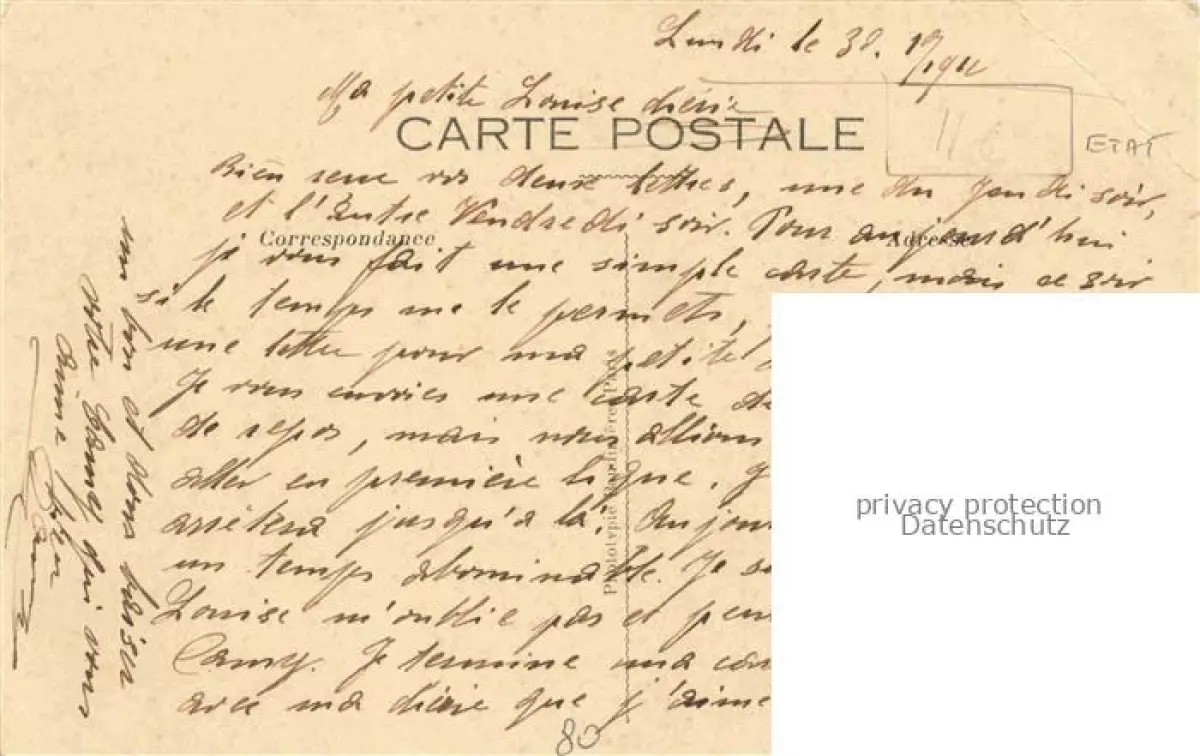 Lundi le 30.
Ma petite Louise chérie
CARTE POSTALE
ETAT
Bien reçu vos deux lettres, une du Jeudi soir,
et l'autre Vendredi soir. Pour aujourd'hui
Correspondance
Adresse
je vous fait une simple carte, mais ce soir
si le temps me le permets,
une lettre pour ma petite
Je vous envoies une carte de
de repos, mais nous allions
aller en première ligne.
arrêtera jusqu'a là. Aujour
un temps abominable. Je
Louise m'oublie pas et
Camy. Je termine ma
avec ma chérie que j'aime
un bon et doux baiser
votre Camy qui vous
aime bien
Camy
Phototypie Baudinière, Paris
80
privacy protection
Datenschutz